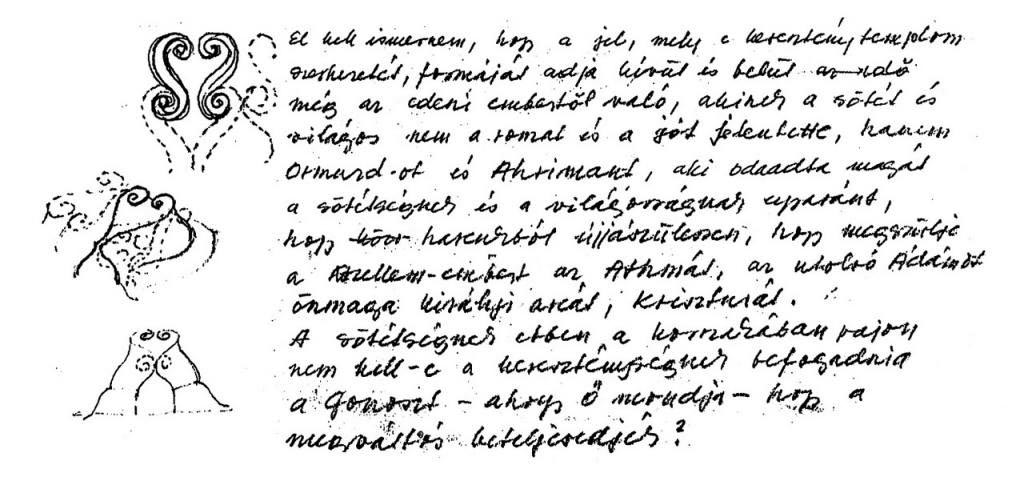 El kell ismernem, hogy a jel, mely e keresztény templom
szerkezetét, formáját adja kívül és belül az idő
még az édeni embertől való, akinek a sötét és
világos nem a rosszat és a jót jelentette, hanem
Ormuzd-ot és Ahrimant, aki odaadta magát
a sötétségnek és a világosságnak egyaránt,
hogy harcukból újjászülessen, hogy megszülje
a szellem-embert az Athmát, az utolsó Ádámot
önmaga királyi arcát, Krisztusát.
A sötétségnek ebben a korszakában vajon
nem kell-e a kereszténységnek befogadnia
a Gonoszt – ahogy Ő mondja – hogy a
megváltás beteljesedjék?